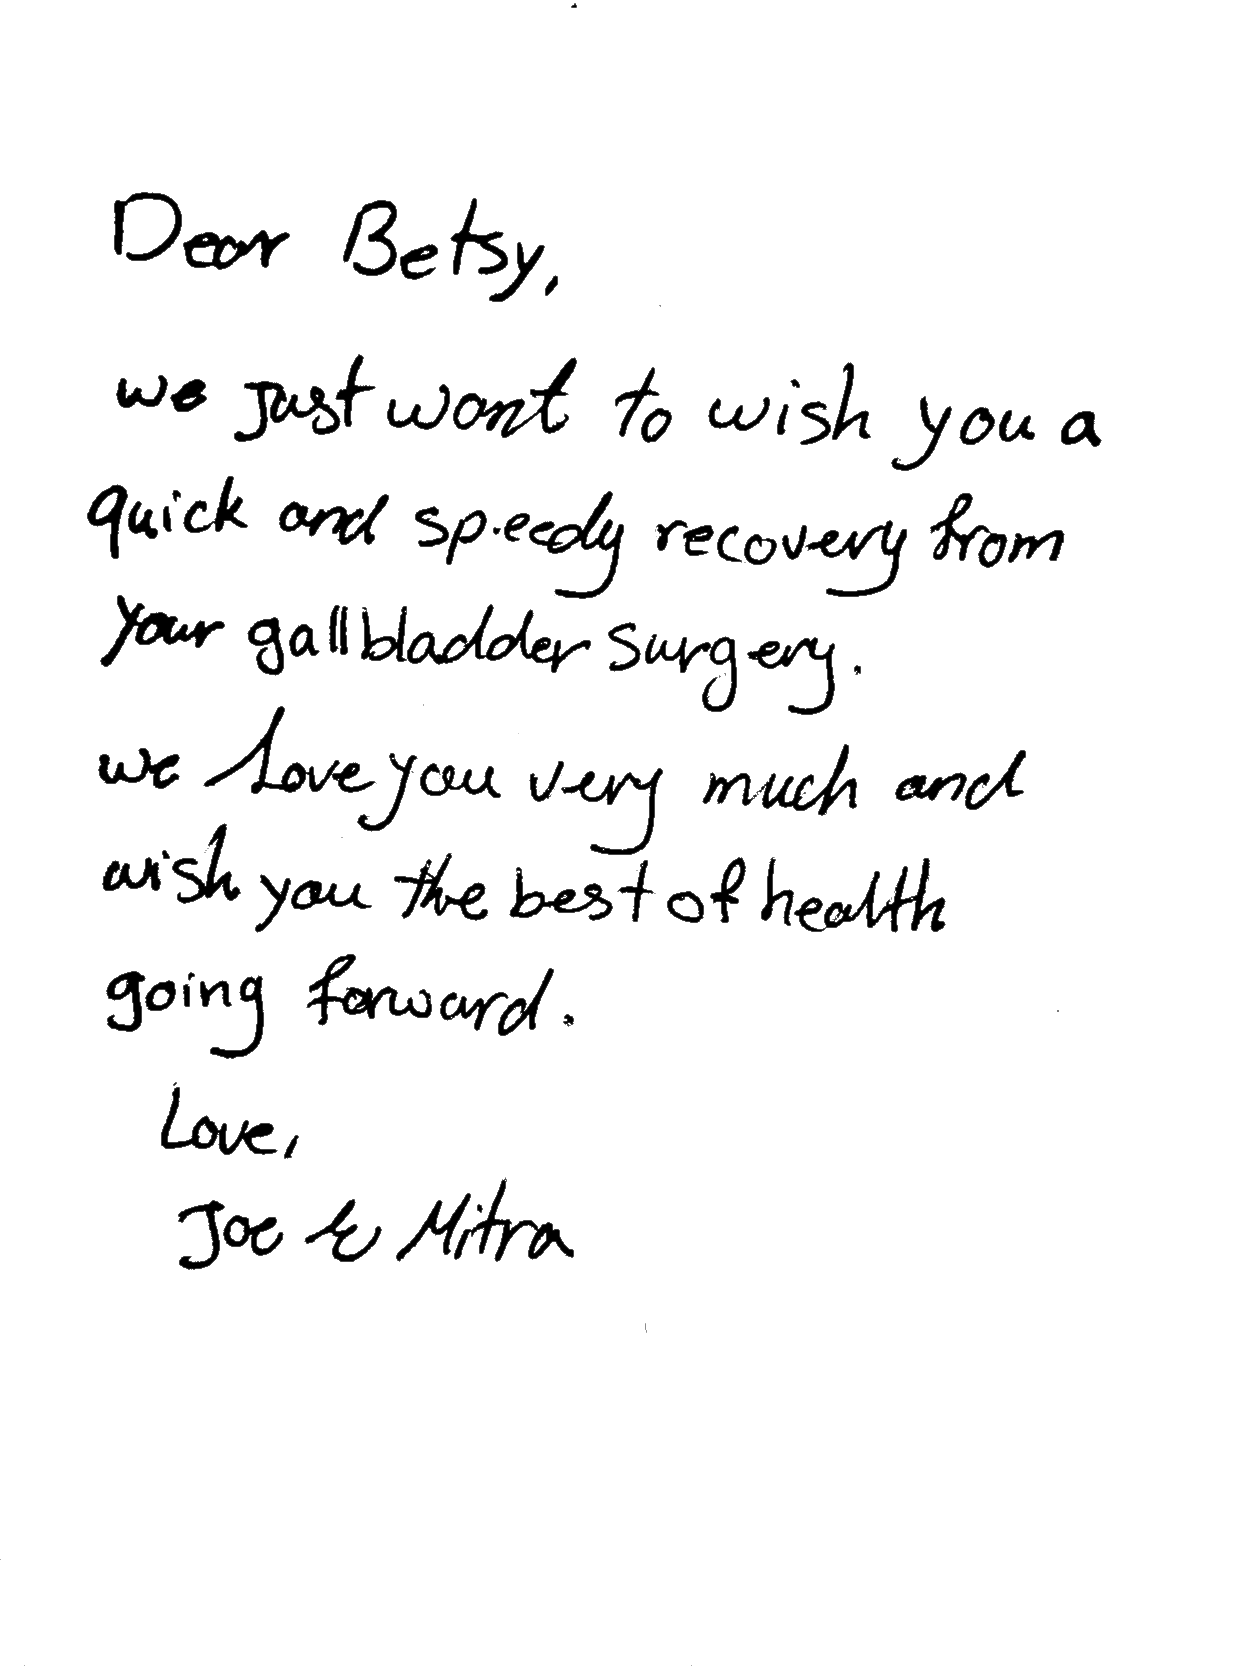 Dear Betsy,
we just want to wish you a
quick and speedy recovery from
your gallbladder surgery.
we love you very much and
wish you the best of health
going forward.
Love,
Joe & Mitra